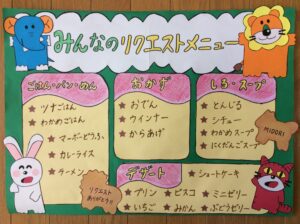 みんなのリクエストメニュー
ごはん・パン・めん
★ツナごはん
★わかめごはん
★マーボーどうふ
★カレーライス
★ラーメン
おかず
★おでん
★ウインナー
★からあげ
しる・スープ
★とんじる
★シチュー
★わかめスープ
★にくだんごスープ
MIDORI
リクエスト
ありがとう!!
デザート
★ショートケーキ
★プリン ★ピスコ ★ミニゼリー
★いちご ★みかん ★ぶどうゼリー